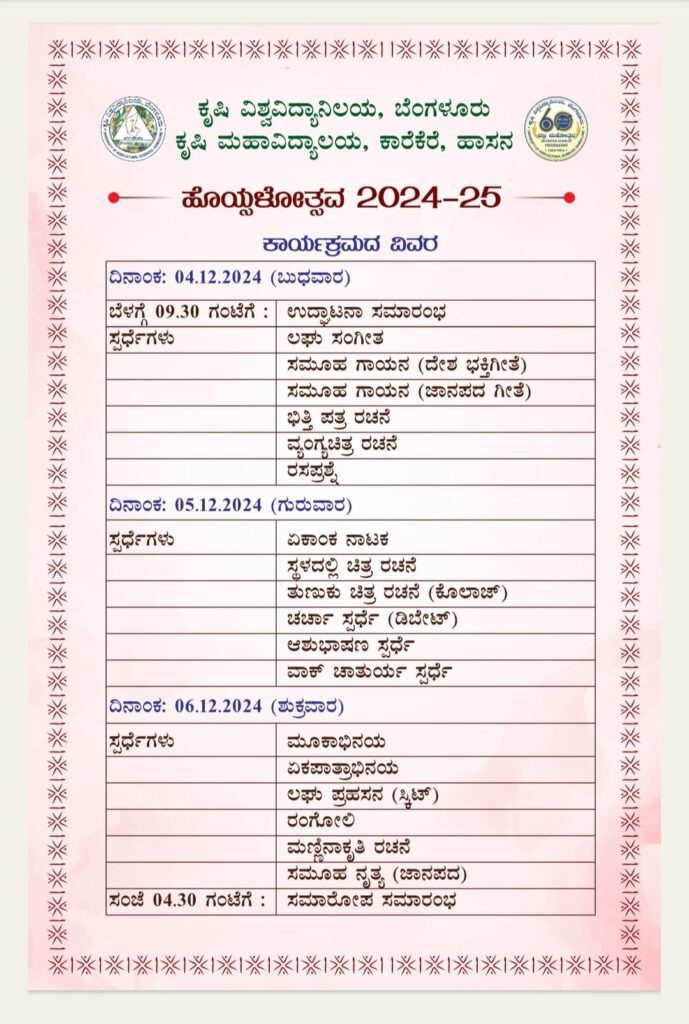 ಕೃಷಿ ವಿಶ್ವವಿದ್ಯಾನಿಲಯ, ಬೆಂಗಳೂರು
ಕೃಷಿ ಮಹಾವಿದ್ಯಾಲಯ, ಕಾರೆಕೆರೆ, ಹಾಸನ
ಹೊಯ್ಸಳೋತ್ಸವ 2024-25
ಕಾರ್ಯಕ್ರಮದ ವಿವರ
ದಿನಾಂಕ: 04.12.2024 (ಬುಧವಾರ)
ಬೆಳಗ್ಗೆ 09.30 ಗಂಟೆಗೆ : ಉದ್ಘಾಟನಾ ಸಮಾರಂಭ
ಸ್ಪರ್ಧೆಗಳು ಲಘು ಸಂಗೀತ
ಸಮೂಹ ಗಾಯನ (ದೇಶ ಭಕ್ತಿಗೀತೆ)
ಸಮೂಹ ಗಾಯನ (ಜಾನಪದ ಗೀತೆ)
ಭಿತ್ತಿ ಪತ್ರ ರಚನೆ
ವ್ಯಂಗ್ಯಚಿತ್ರ ರಚನೆ
ರಸಪ್ರಶ್ನೆ
ದಿನಾಂಕ: 05.12.2024 (ಗುರುವಾರ)
ಸ್ಪರ್ಧೆಗಳು ಏಕಾಂಕ ನಾಟಕ
ಸ್ಥಳದಲ್ಲಿ ಚಿತ್ರ ರಚನೆ
ತುಣುಕು ಚಿತ್ರ ರಚನೆ (ಕೊಲಾಜ್)
ಚರ್ಚಾ ಸ್ಪರ್ಧೆ (ಡಿಬೇಟ್)
ಆಶುಭಾಷಣ ಸ್ಪರ್ಧೆ
ವಾಕ್ ಚಾತುರ್ಯ ಸ್ಪರ್ಧೆ
ದಿನಾಂಕ: 06.12.2024 (ಶುಕ್ರವಾರ)
ಸ್ಪರ್ಧೆಗಳು ಮೂಕಾಭಿನಯ
ಏಕಪಾತ್ರಾಭಿನಯ
ಲಘು ಪ್ರಹಸನ (ಸ್ಕಿಟ್)
ರಂಗೋಲಿ
ಮಣ್ಣಿನಾಕೃತಿ ರಚನೆ
ಸಮೂಹ ನೃತ್ಯ (ಜಾನಪದ)
ಸಂಜೆ 04.30 ಗಂಟೆಗೆ : ಸಮಾರೋಪ ಸಮಾರಂಭ